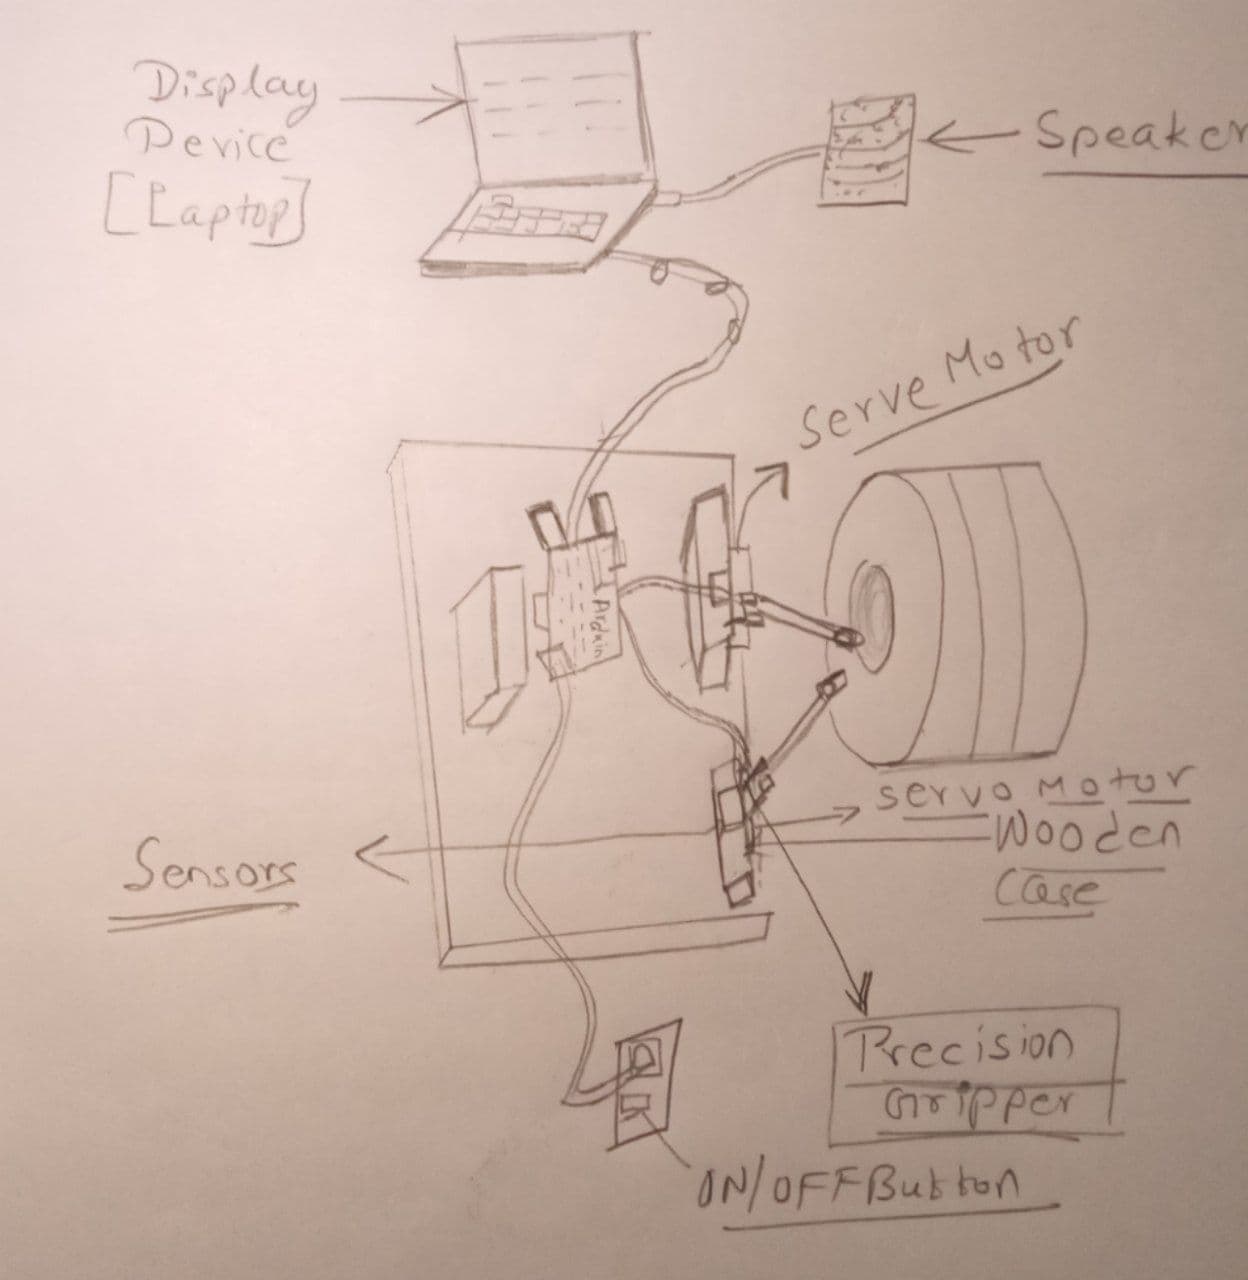 Display
Device
[Laptop]
Speaker
Serve Motor
Arduin
Servo Motor
Wooden
Case
Sensors
Precision
Gripper
ON/OFF Button